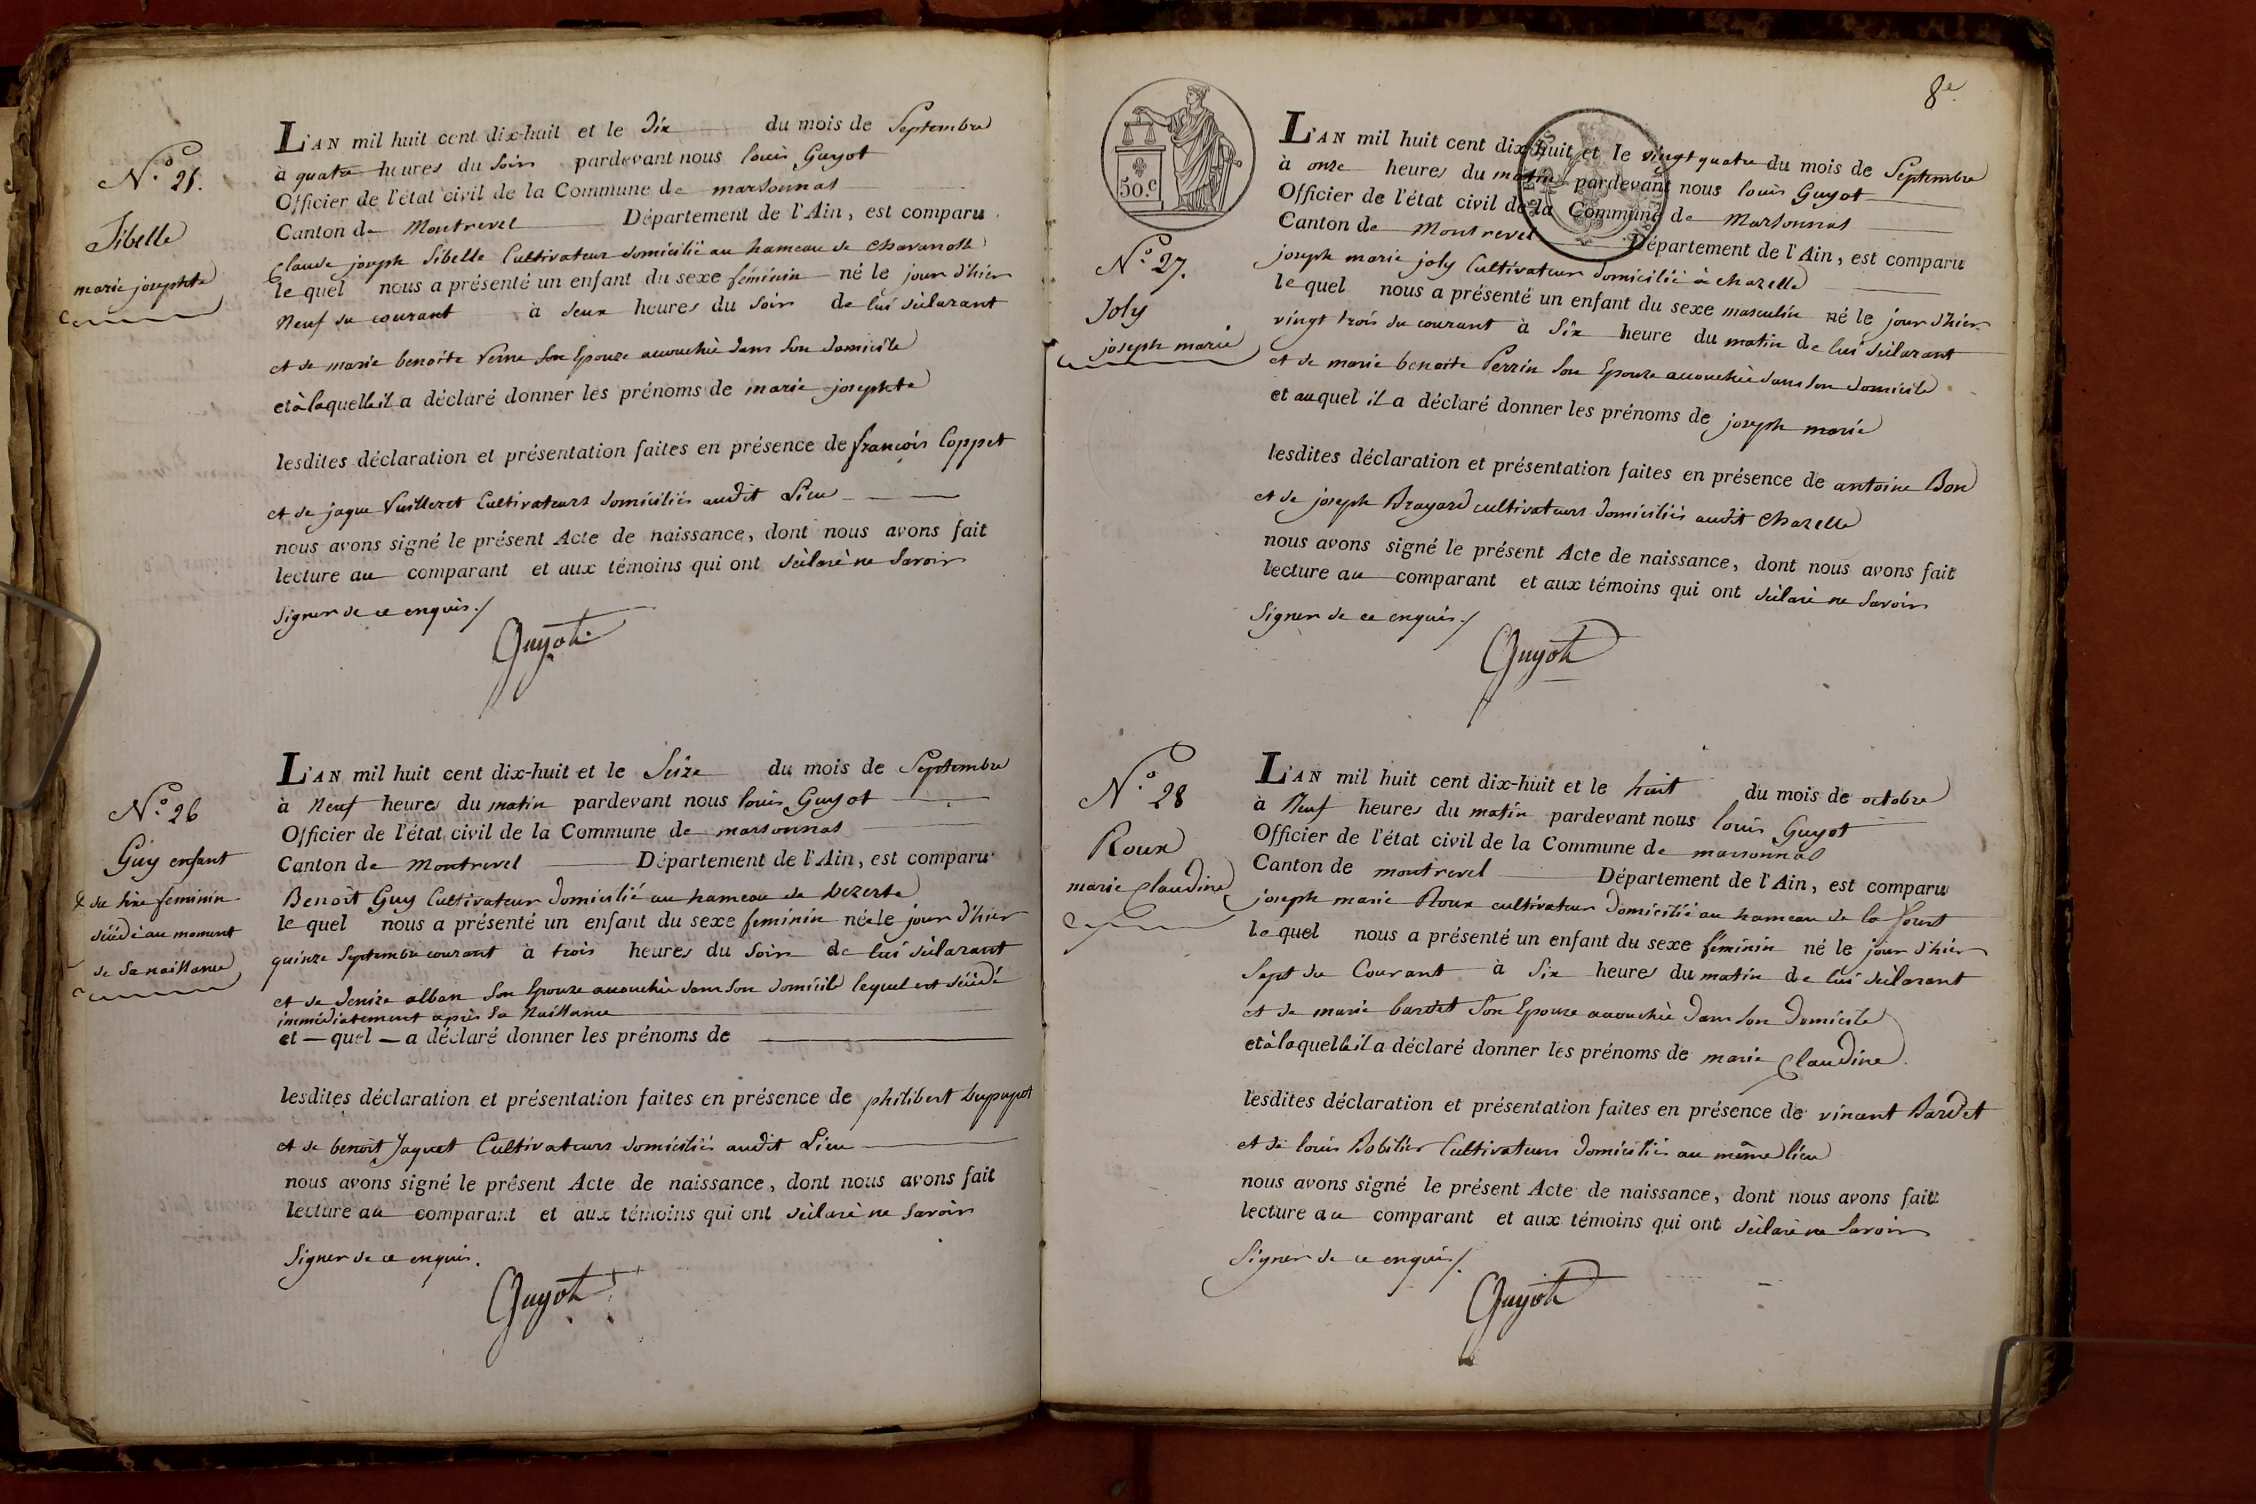 N.º 25.
Sibelle
marie josephte
L'AN mil huit cent dix-huit et le dix du mois de Septembre
à quatre heures du soir pardevant nous louis Guyot
Officier de l'état civil de la Commune de marsonnas
Canton de Montrevel Département de l'Ain, est comparu
Claude joseph Sibelle Cultivateur domicilié au hameau de Chavanosse
lequel nous a présenté un enfant du sexe féminin né le jour d'hier
Neuf du courant à deux heures du soir de lui déclarant
et de marie benoite Verne son Epouze accouchée dans son domicile
et à laquelle il a déclaré donner les prénoms de marie josephte
lesdites déclaration et présentation faites en présence de françois Coppet
et de jaque Vuilleret Cultivateurs domiciliés audit Lieu
nous avons signé le présent Acte de naissance, dont nous avons fait
lecture au comparant et aux témoins qui ont déclaré ne Savoir
Signer de ce enquis./
Guyot
N.º 26
Guy enfant
du sexe feminin
décédé au moment
de sa naissance
L'AN mil huit cent dix-huit et le Seize du mois de Septembre
à Neuf heures du matin pardevant nous louis Guyot
Officier de l'état civil de la Commune de marsonnas
Canton de Montrevel Département de l'Ain, est comparu
Benoit Guy Cultivateur domicilié au hameau de Dezerte
lequel nous a présenté un enfant du sexe feminin née le jour d'hier
quinze Septembre courant à trois heures du soir de lui déclarant
et de denize alban son Epouze accouchée dans son domicile lequel est décédé
immédiatement après sa Naissance
et — quel — a déclaré donner les prénoms de
lesdites déclaration et présentation faites en présence de philibert Dupuyot
et de benoit Jaquet Cultivateurs domiciliés audit Lieu
nous avons signé le présent Acte de naissance, dont nous avons fait
lecture au comparant et aux témoins qui ont déclaré ne Savoir
Signer de ce enquis.
Guyot
8e
50.c
N.º 27.
Joly
joseph marie
L'AN mil huit cent dix-huit et le vingt quatre du mois de Septembre
à onze heures du matin pardevant nous louis Guyot
Officier de l'état civil de la Commune de Marsonnas
Canton de Montrevel Département de l'Ain, est comparu
joseph marie joly Cultivateur domicilié à chazelle
lequel nous a présenté un enfant du sexe masculin né le jour d'hier
vingt trois du courant à Six heure du matin de lui déclarant
et de marie benoite Perrin son Epouze accouchée dans son domicile
et auquel il a déclaré donner les prénoms de joseph marie
lesdites déclaration et présentation faites en présence de antoine Bon
et de joseph Brayard cultivateurs domiciliés audit chazelle
nous avons signé le présent Acte de naissance, dont nous avons fait
lecture au comparant et aux témoins qui ont déclaré ne Savoir
Signer de ce enquis./
Guyot
N.º 28
Roux
marie Claudine
L'AN mil huit cent dix-huit et le huit du mois de octobre
à Neuf heures du matin pardevant nous louis Guyot
Officier de l'état civil de la Commune de marsonnas
Canton de montrevel Département de l'Ain, est comparu
joseph marie Roux cultivateur domicilié au hameau de la forest
lequel nous a présenté un enfant du sexe féminin né le jour d'hier
Sept du Courant à Six heures du matin de lui déclarant
et de marie bardet son Epouze accouchée dans son domicile
et à laquelle il a déclaré donner les prénoms de marie Claudine
lesdites déclaration et présentation faites en présence de vincent Bardet
et de louis Robilier Cultivateurs domiciliés au même lieu
nous avons signé le présent Acte de naissance, dont nous avons fait
lecture au comparant et aux témoins qui ont déclaré ne Savoir
Signer de ce enquis/.
Guyot